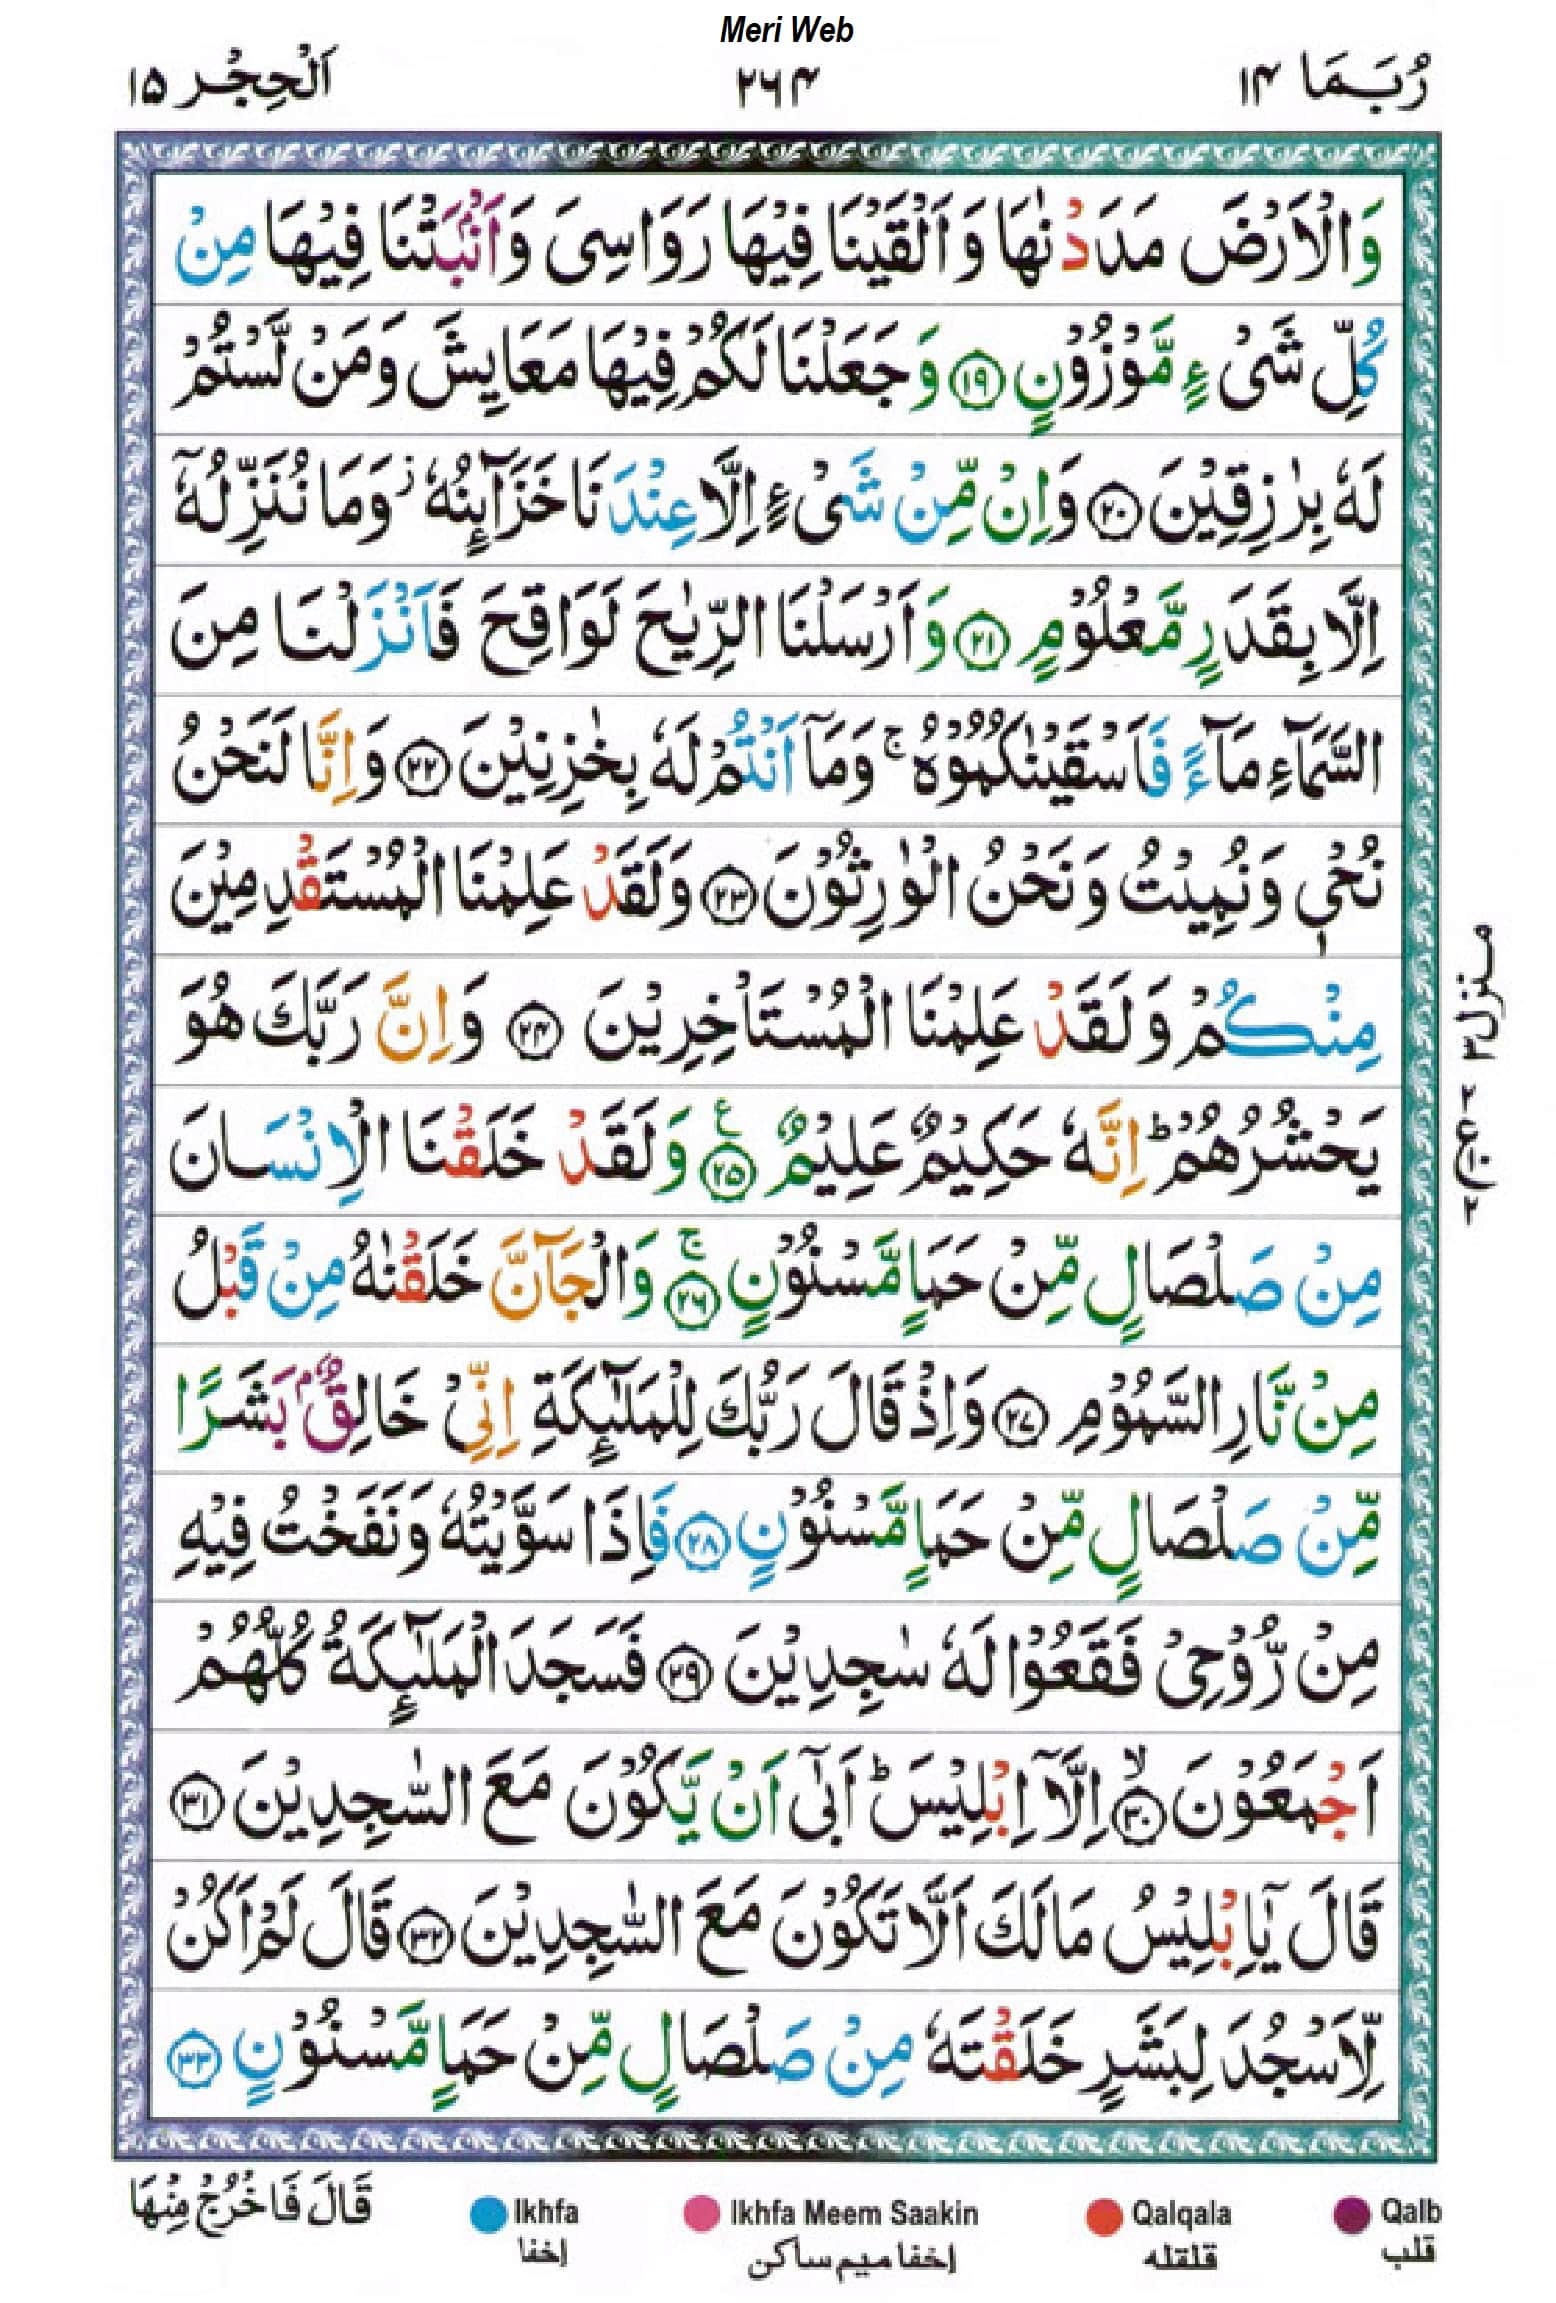 Meri Web
رُبَمَا ۱۴
۲۶۴
اَلْحِجْر ۱۵
وَالْاَرْضَ مَدَدْنٰهَا وَ اَلْقَيْنَا فِيْهَا رَوَاسِىَ وَاَنْۢبَتْنَا فِيْهَا مِنْ
كُلِّ شَىْءٍ مَّوْزُوْنٍ ۝۱۹ وَ جَعَلْنَا لَكُمْ فِيْهَا مَعَايِشَ وَمَنْ لَّسْتُمْ
لَهٗ بِرٰزِقِيْنَ ۝۲۰ وَاِنْ مِّنْ شَىْءٍ اِلَّا عِنْدَنَا خَزَآئِنُهٗ ز وَمَا نُنَزِّلُهٗۤ
اِلَّا بِقَدَرٍ مَّعْلُوْمٍ ۝۲۱ وَ اَرْسَلْنَا الرِّيٰحَ لَوَاقِحَ فَاَنْزَلْنَا مِنَ
السَّمَآءِ مَآءً فَاَسْقَيْنٰكُمُوْهُ ۚ وَمَاۤ اَنْتُمْ لَهٗ بِخٰزِنِيْنَ ۝۲۲ وَ اِنَّا لَنَحْنُ
نُحْىٖ وَنُمِيْتُ وَنَحْنُ الْوٰرِثُوْنَ ۝۲۳ وَلَقَدْ عَلِمْنَا الْمُسْتَقْدِمِيْنَ
مِنْكُمْ وَ لَقَدْ عَلِمْنَا الْمُسْتَاْخِرِيْنَ ۝۲۴ وَ اِنَّ رَبَّكَ هُوَ
يَحْشُرُهُمْ ؕ اِنَّهٗ حَكِيْمٌ عَلِيْمٌ ۝۲۵ ع وَ لَقَدْ خَلَقْنَا الْاِنْسَانَ
مِنْ صَلْصَالٍ مِّنْ حَمَاٍ مَّسْنُوْنٍ ۝۲۶ ۚ وَالْجَآنَّ خَلَقْنٰهُ مِنْ قَبْلُ
مِنْ نَّارِ السَّمُوْمِ ۝۲۷ وَاِذْ قَالَ رَبُّكَ لِلْمَلٰٓئِكَةِ اِنِّىْ خَالِقٌۢ بَشَرًا
مِّنْ صَلْصَالٍ مِّنْ حَمَاٍ مَّسْنُوْنٍ ۝۲۸ فَاِذَا سَوَّيْتُهٗ وَنَفَخْتُ فِيْهِ
مِنْ رُّوْحِىْ فَقَعُوْا لَهٗ سٰجِدِيْنَ ۝۲۹ فَسَجَدَ الْمَلٰٓئِكَةُ كُلُّهُمْ
اَجْمَعُوْنَ ۝۳۰ ۙ اِلَّاۤ اِبْلِيْسَ ؕ اَبٰٓى اَنْ يَّكُوْنَ مَعَ السّٰجِدِيْنَ ۝۳۱
قَالَ يٰۤاِبْلِيْسُ مَا لَكَ اَلَّا تَكُوْنَ مَعَ السّٰجِدِيْنَ ۝۳۲ قَالَ لَمْ اَكُنْ
لِّاَسْجُدَ لِبَشَرٍ خَلَقْتَهٗ مِنْ صَلْصَالٍ مِّنْ حَمَاٍ مَّسْنُوْنٍ ۝۳۳
منزل ۳
۲ ع ۲
قَالَ فَاخْرُجْ مِنْهَا
Ikhfa
اخفا
Ikhfa Meem Saakin
اخفا میم ساکن
Qalqala
قلقله
Qalb
قلب